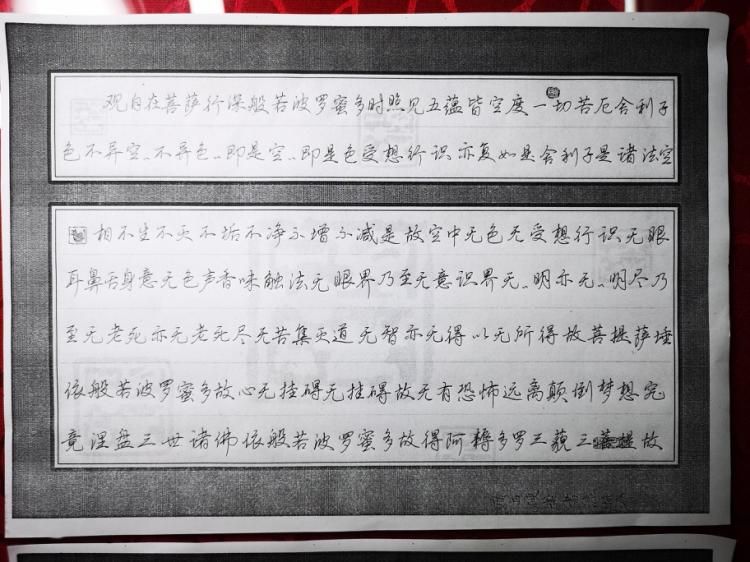 观自在菩萨行深般若波罗蜜多时照见五蕴皆空度一切苦厄舍利子
色不异空〻不异色〻即是空〻即是色受想行识亦复如是舍利子是诸法空
相不生不灭不垢不净不增不减是故空中无色无受想行识无眼
耳鼻舌身意无色声香味触法无眼界乃至无意识界无〻明亦无〻明尽乃
至无老死亦无老死尽无苦集灭道无智亦无得以无所得故菩提萨埵
依般若波罗蜜多故心无挂碍无挂碍故无有恐怖远离颠倒梦想究
竟涅盘三世诸佛依般若波罗蜜多故得阿耨多罗三藐三菩提故